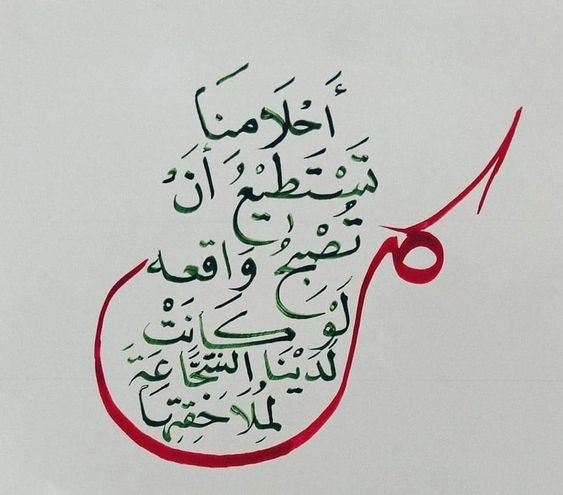 كل
أَحْلَامنَا
تَسْتَطِيْعُ أَنْ
تُصْبِحُ وَاقعه
لَوْ كَانَتْ
لَدَيْنَا الشَّجَاعَةَ
لِمُلَاحَقَتِهَا